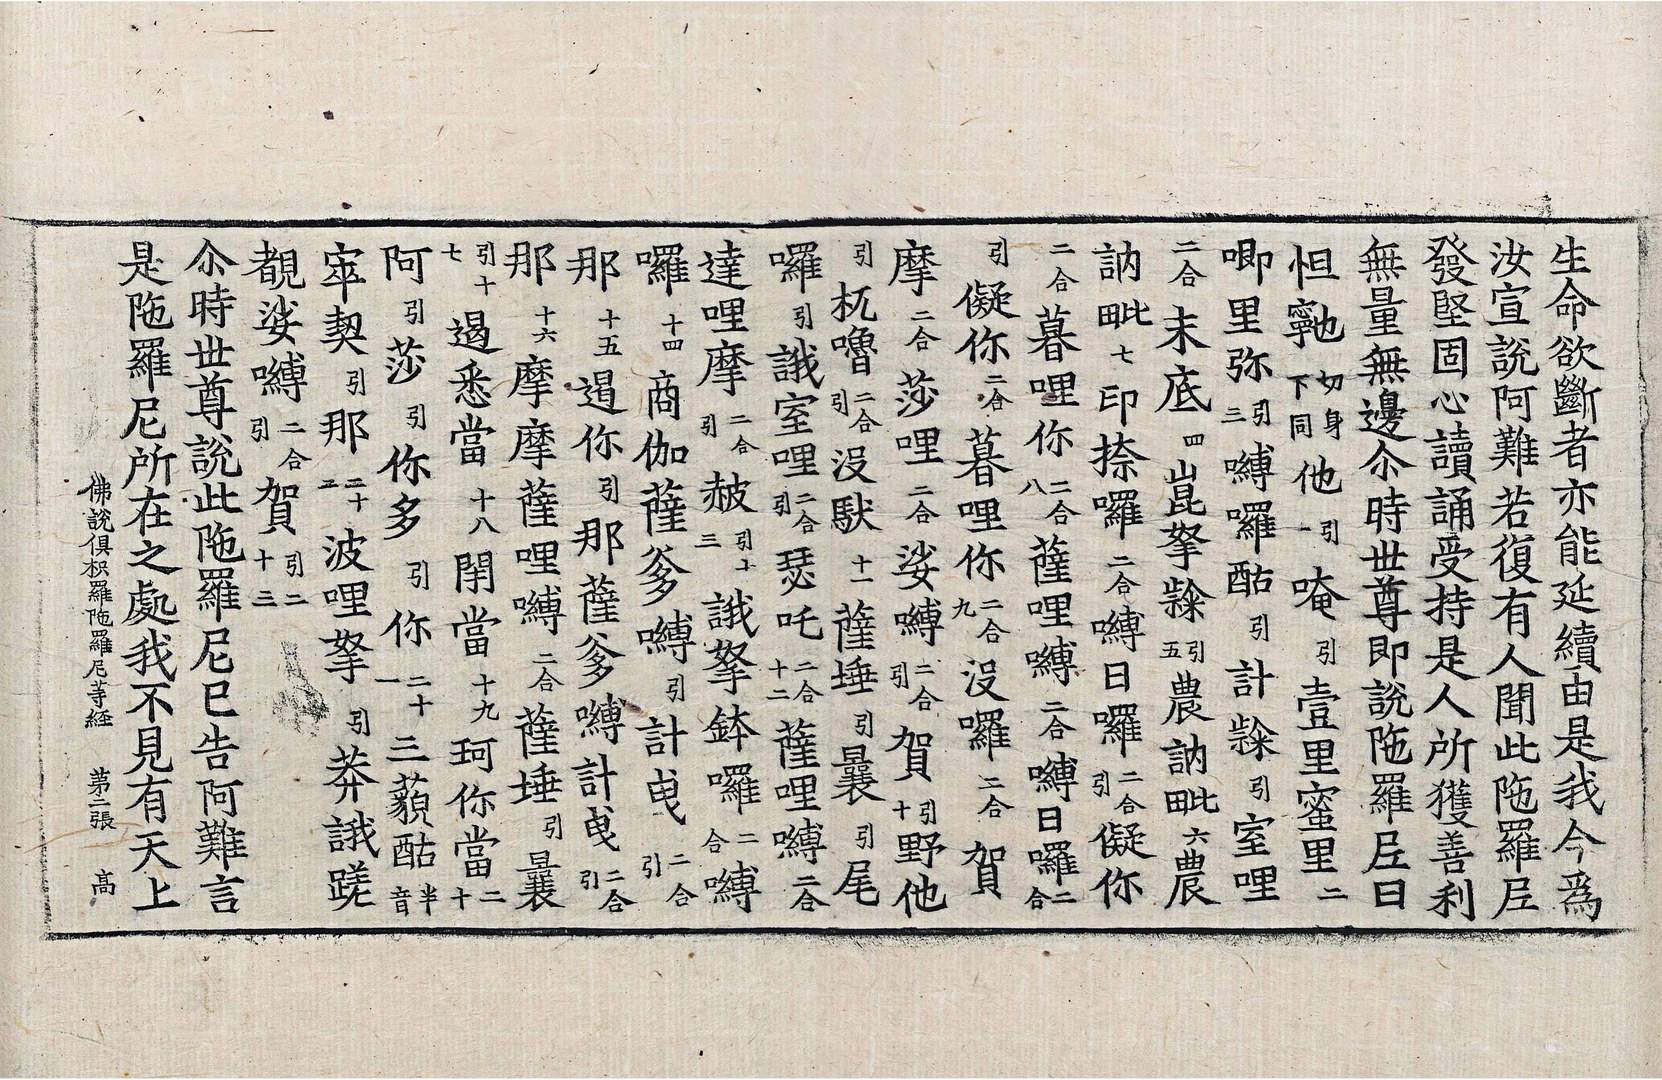 生命欲斷者亦能延續由是我今爲
汝宣說阿難若復有人聞此陁羅𡰱
發堅固心讀誦受持是人所獲善利
無量無邊尒時世尊即說陁羅𡰱曰
怛寧也切身下同他引一唵引壹里蜜里二
唧里弥引三嚩囉酤引計𨷲引室哩
二合末底四崑拏𨷲引五農訥毗六農
訥毗七印捺囉二合嚩日囉二合引儗你
二合暮哩你二合八薩哩嚩二合嚩日囉二合
引儗你二合暮哩你二合九沒囉二合賀
摩二合莎哩二合娑嚩二合引賀引十野他
引杌嚕二合引沒馱十一薩埵引曩引尾
囉引誐室哩二合引瑟吒二合十二薩哩嚩二合
達哩摩二合引赦引十三誐拏鉢囉二合嚩
囉十四商伽薩爹嚩引計曵二合引
那十五遏你引那薩爹嚩計曵二合引
那十六摩摩薩哩嚩二合薩埵引曩
引十七遏悉當十八閉當十九珂你當二十
阿引莎引你多引你二十一三藐酤半音
寧契引那二十二波哩拏引莽誐蹉
覩娑嚩二合引賀引二十三
尒時世尊說此陁羅尼巳告阿難言
是陁羅尼所在之處我不見有天上
佛說俱枳羅陁羅尼䓁經 第二張 高